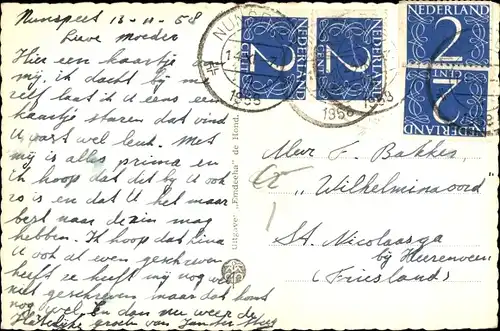 Nunspeet 13-10-58
Lieve moeder
Hier een kaartje
mij, ik dacht bij m
zelf laat ik U eens een
kaartje sturen dat vind
U vast wel leuk. Met
mij is alles prima en
ik hoop dat dit by U ook
zo is en dat U het maar
naar de zin mag
hebben. Ik hoop dat
U ook at even geschreven
heeft ze heeft mij nog wel
niet geschreven maar dat komt
nog wel. En dan nu weer de
groeten van
Uitgever "Eendecha" de Hond.
NUNS
1958
1958
1958
NEDERLAND
2
CENT
NEDERLAND
2
CENT
NEDERLAND
2
CENT
NEDERLAND
2
CENT
Mevr F. Bakker,
"Wilhelminaoord"
St. Nicolaasga
bij Heerenveen
(Friesland)